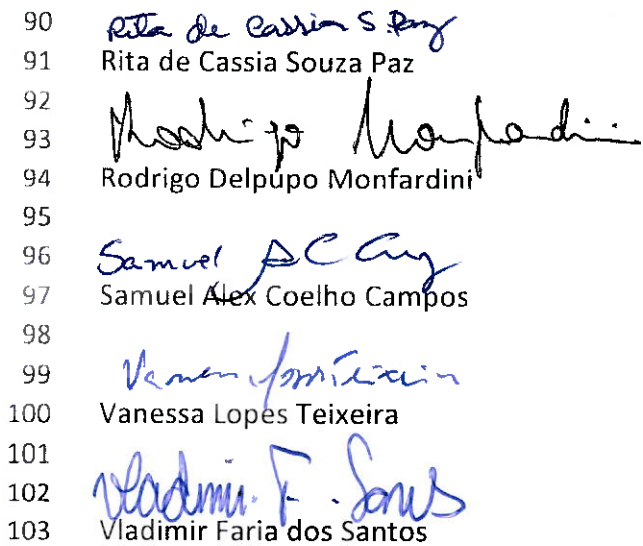 90 Rita de Cassia S. Paz
91 Rita de Cassia Souza Paz
92
93 Rodrigo Monfardini
94 Rodrigo Delpupo Monfardini
95
96 Samuel A C
97 Samuel Alex Coelho Campos
98
99 Teixeira
100 Vanessa Lopes Teixeira
101
102 Vladimir F. Santos
103 Vladimir Faria dos Santos